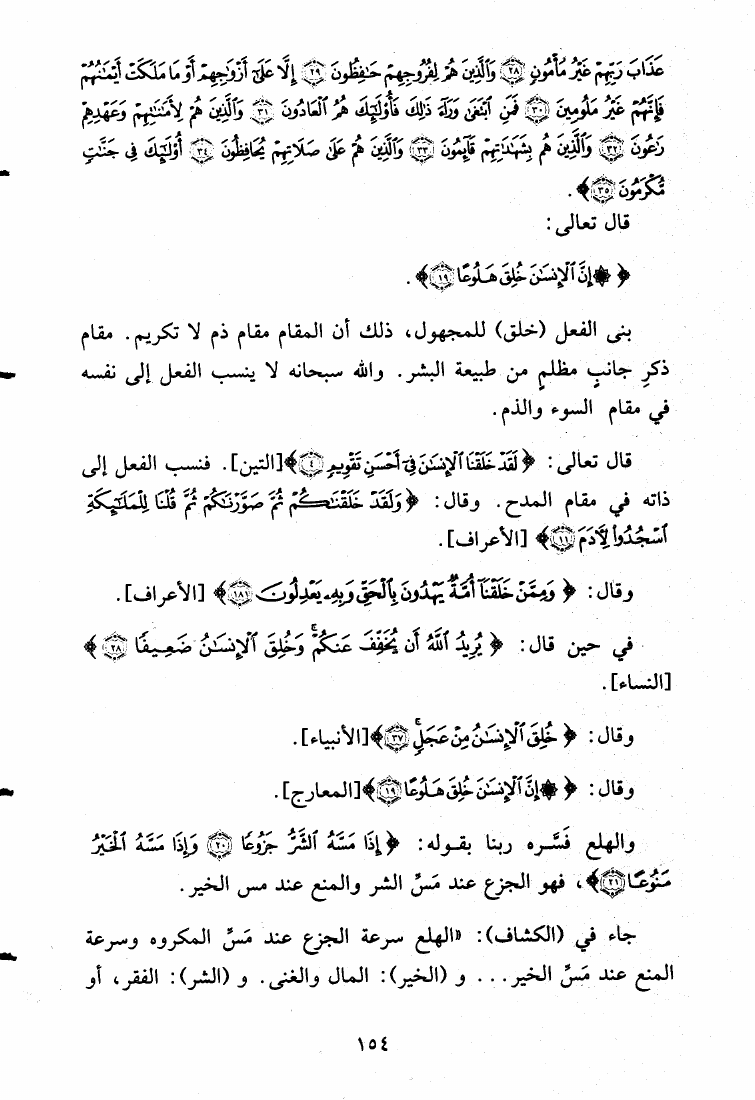 عَذَابَ رَبِّهِمْ غَيْرُ مَأْمُونٍ ﴿٢٨﴾ وَالَّذِينَ هُمْ لِفُرُوجِهِمْ حَافِظُونَ ﴿٢٩﴾ إِلَّا عَلَىٰ أَزْوَاجِهِمْ أَوْ مَا مَلَكَتْ أَيْمَانُهُمْ
فَإِنَّهُمْ غَيْرُ مَلُومِينَ ﴿٣٠﴾ فَمَنِ ابْتَغَىٰ وَرَاءَ ذَٰلِكَ فَأُولَٰئِكَ هُمُ الْعَادُونَ ﴿٣١﴾ وَالَّذِينَ هُمْ لِأَمَانَاتِهِمْ وَعَهْدِهِمْ
رَاعُونَ ﴿٣٢﴾ وَالَّذِينَ هُم بِشَهَادَاتِهِمْ قَائِمُونَ ﴿٣٣﴾ وَالَّذِينَ هُمْ عَلَىٰ صَلَاتِهِمْ يُحَافِظُونَ ﴿٣٤﴾ أُولَٰئِكَ فِي جَنَّاتٍ
مُّكْرَمُونَ ﴿٣٥﴾﴾.
قال تعالى:
﴿ ۞ إِنَّ الْإِنسَانَ خُلِقَ هَلُوعًا ﴿١٩﴾﴾.
بنى الفعل (خلق) للمجهول، ذلك أن المقام مقام ذم لا تكريم. مقام
ذكرِ جانبٍ مظلمٍ من طبيعة البشر. والله سبحانه لا ينسب الفعل إلى نفسه
في مقام السوء والذم.
قال تعالى: ﴿ لَقَدْ خَلَقْنَا الْإِنسَانَ فِي أَحْسَنِ تَقْوِيمٍ ﴿٤﴾﴾[التين]. فنسب الفعل إلى
ذاته في مقام المدح. وقال: ﴿ وَلَقَدْ خَلَقْنَاكُمْ ثُمَّ صَوَّرْنَاكُمْ ثُمَّ قُلْنَا لِلْمَلَائِكَةِ
اسْجُدُوا لِآدَمَ ﴿١١﴾﴾ [الأعراف].
وقال: ﴿ وَمِمَّنْ خَلَقْنَا أُمَّةٌ يَهْدُونَ بِالْحَقِّ وَبِهِ يَعْدِلُونَ ﴿١٨١﴾﴾ [الأعراف].
في حين قال: ﴿ يُرِيدُ اللَّهُ أَن يُخَفِّفَ عَنكُمْ ۚ وَخُلِقَ الْإِنسَانُ ضَعِيفًا ﴿٢٨﴾ ﴾
[النساء].
وقال: ﴿ خُلِقَ الْإِنسَانُ مِنْ عَجَلٍ ۚ ﴿٣٧﴾﴾[الأنبياء].
وقال: ﴿ ۞ إِنَّ الْإِنسَانَ خُلِقَ هَلُوعًا ﴿١٩﴾﴾[المعارج].
والهلع فَسَّره ربنا بقوله: ﴿ إِذَا مَسَّهُ الشَّرُّ جَزُوعًا ﴿٢٠﴾ وَإِذَا مَسَّهُ الْخَيْرُ
مَنُوعًا ﴿٢١﴾﴾، فهو الجزع عند مَسِّ الشر والمنع عند مس الخير.
جاء في (الكشاف): «الهلع سرعة الجزع عند مَسِّ المكروه وسرعة
المنع عند مَسِّ الخير... و (الخير): المال والغنى. و (الشر): الفقر، أو
١٥٤